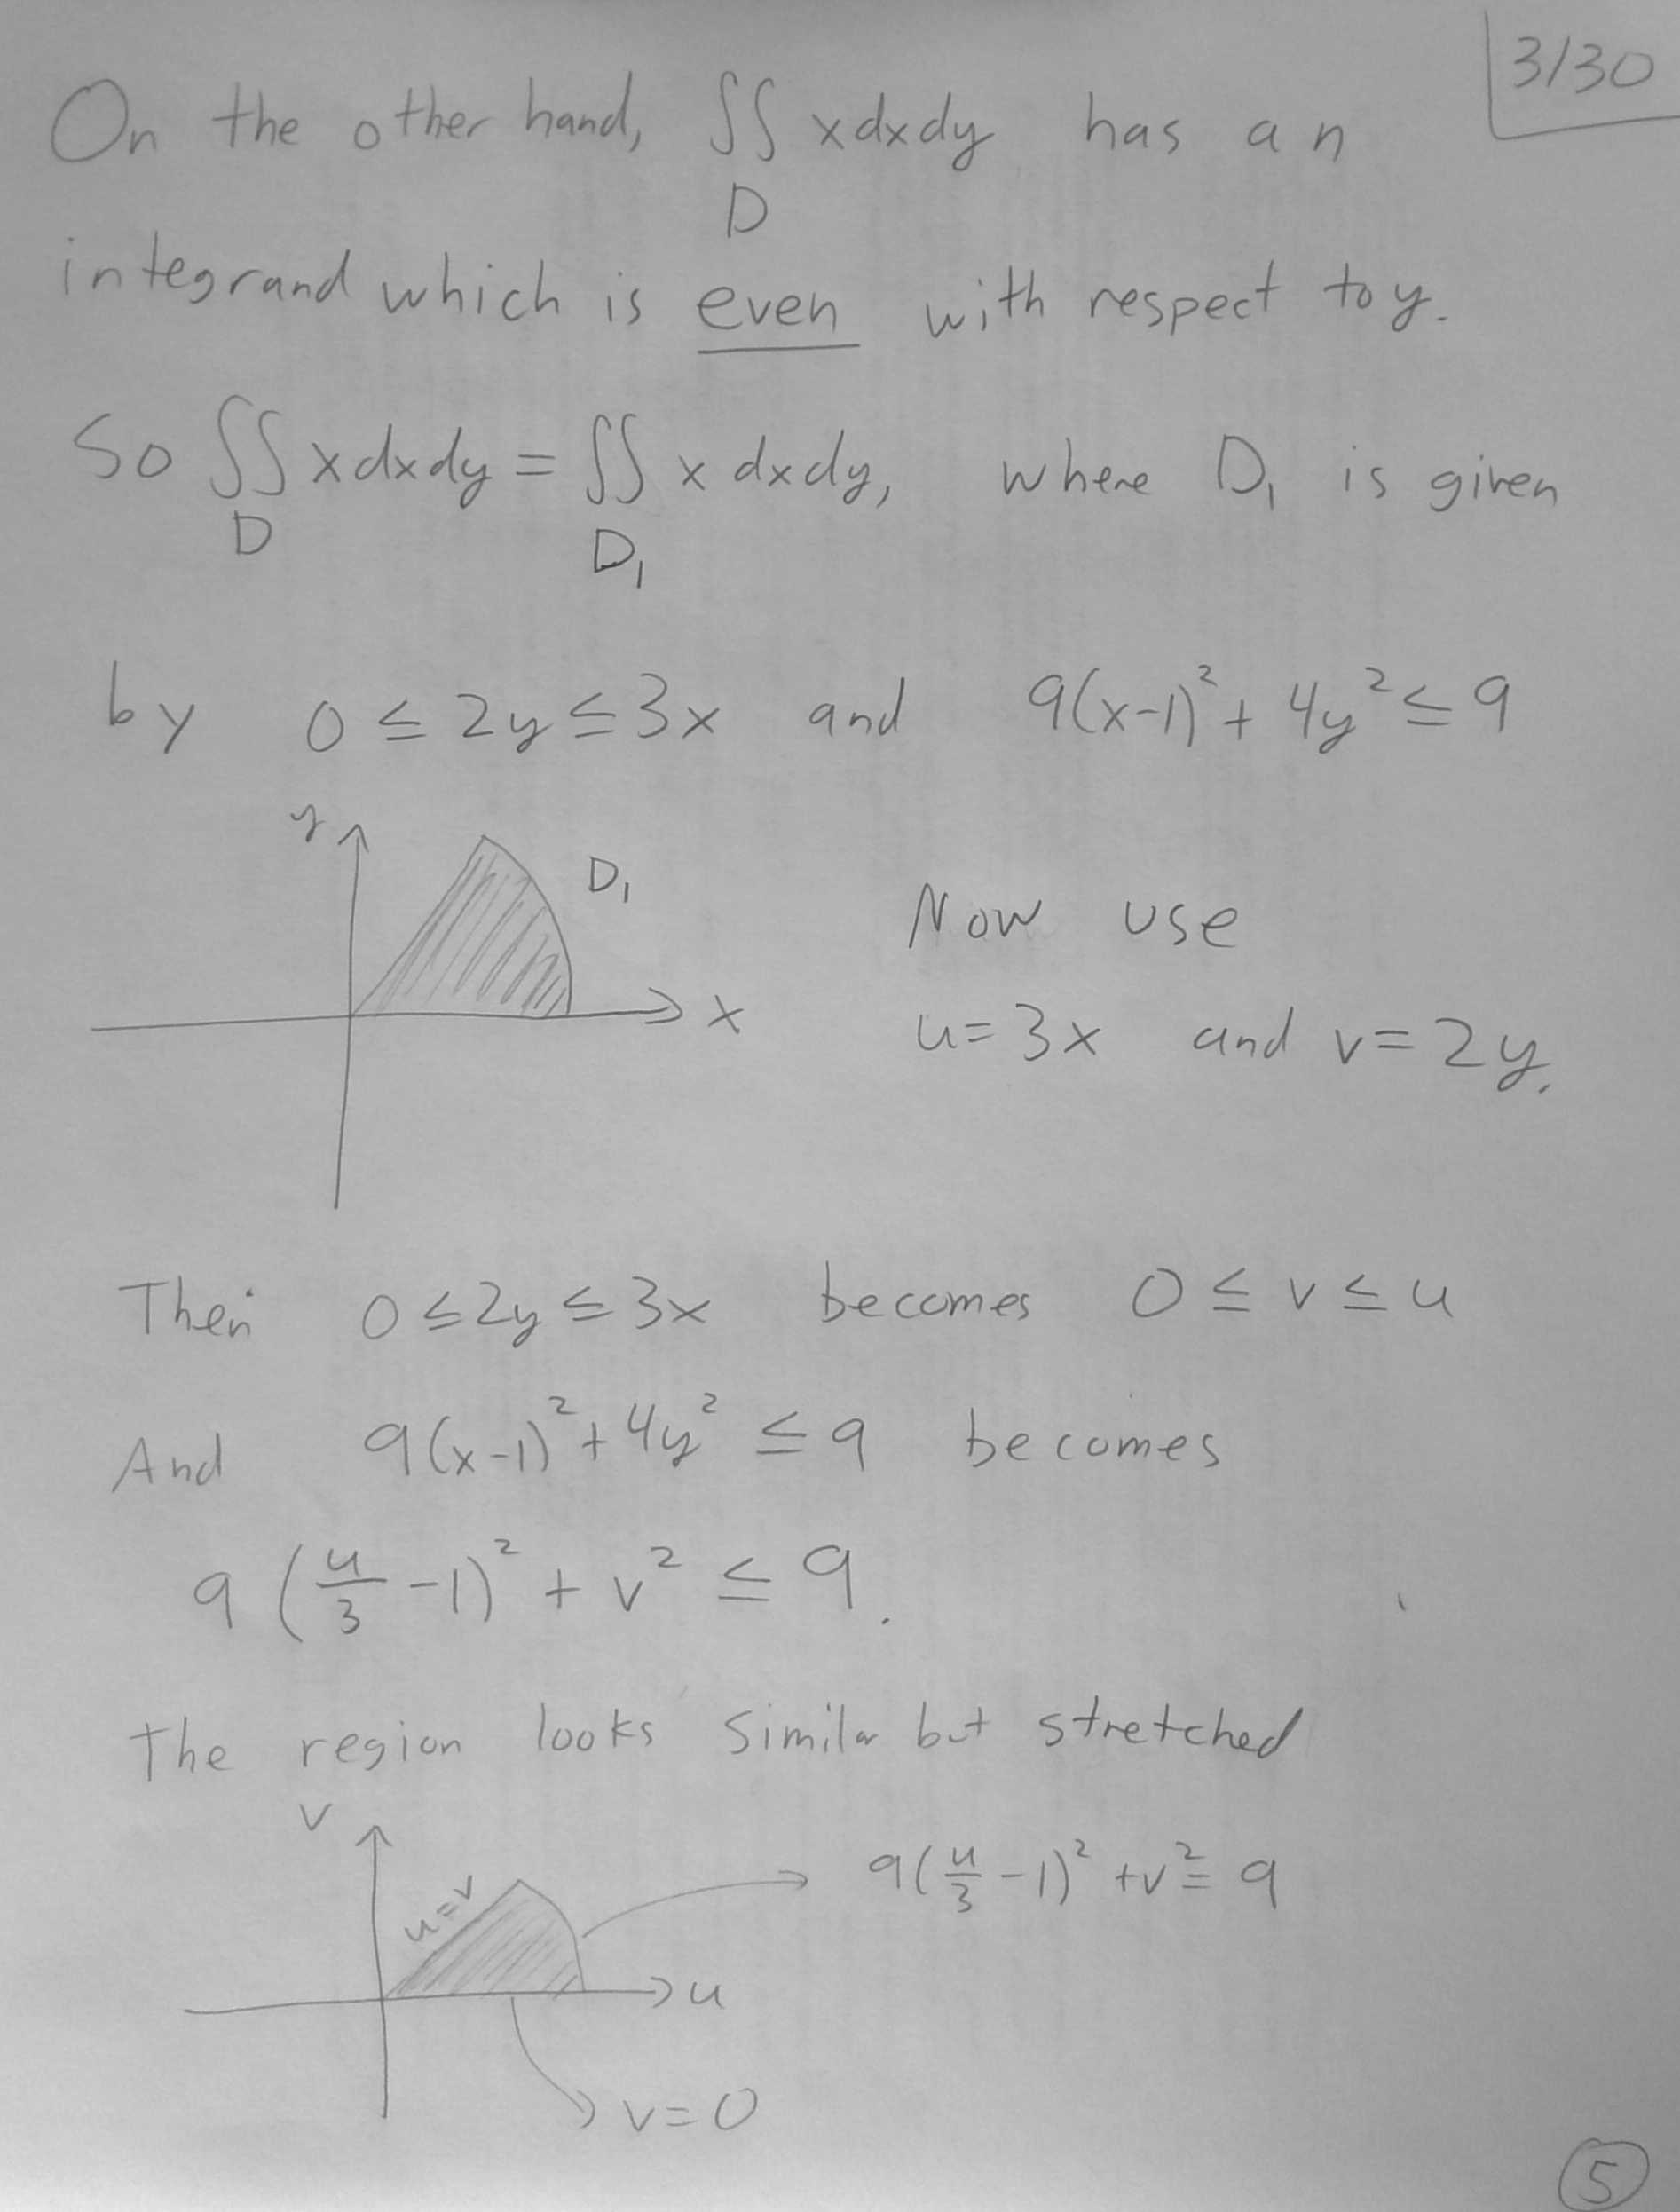 3/30
On the other hand, ∬ x dx dy has an
D
integrand which is even with respect to y.
So ∬ x dx dy = ∬ x dx dy, where D₁ is given
D D₁
by 0 ≤ 2y ≤ 3x and 9(x-1)² + 4y² ≤ 9
y
D₁
x
Now use
u = 3x and v = 2y.
Then 0 ≤ 2y ≤ 3x becomes 0 ≤ v ≤ u
And 9(x-1)² + 4y² ≤ 9 becomes
9(u/3 - 1)² + v² ≤ 9.
The region looks similar but stretched
v
u=v
9(u/3 - 1)² + v² = 9
u
v=0
5